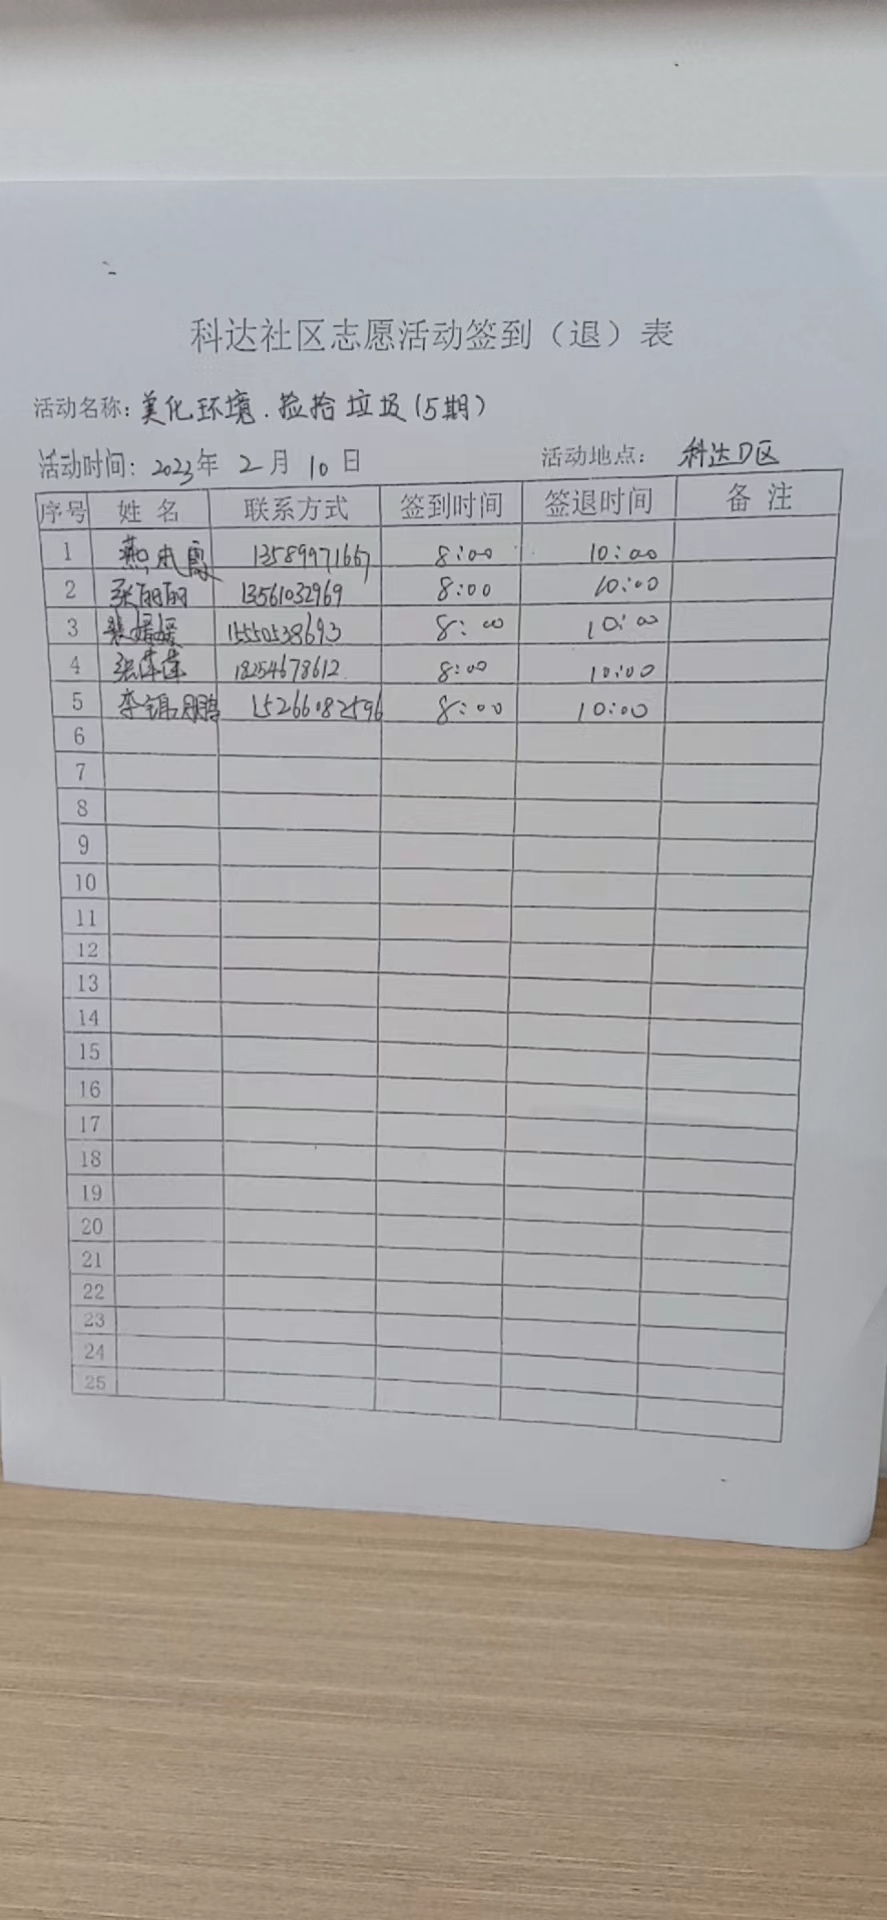 科达社区志愿活动签到（退）表
活动名称：美化环境.捡拾垃圾(5期)
活动时间：2023年 2月 10日 活动地点：科达D区
序号 姓名 联系方式 签到时间 签退时间 备注
1 燕 13589971667 8:00 10:00
2 张丽丽 13561032969 8:00 10:00
3 裴媛媛 15550538693 8:00 10:00
4 张萍萍 18254678612 8:00 10:00
5 李 鹏 15266082596 8:00 10:00
6
7
8
9
10
11
12
13
14
15
16
17
18
19
20
21
22
23
24
25